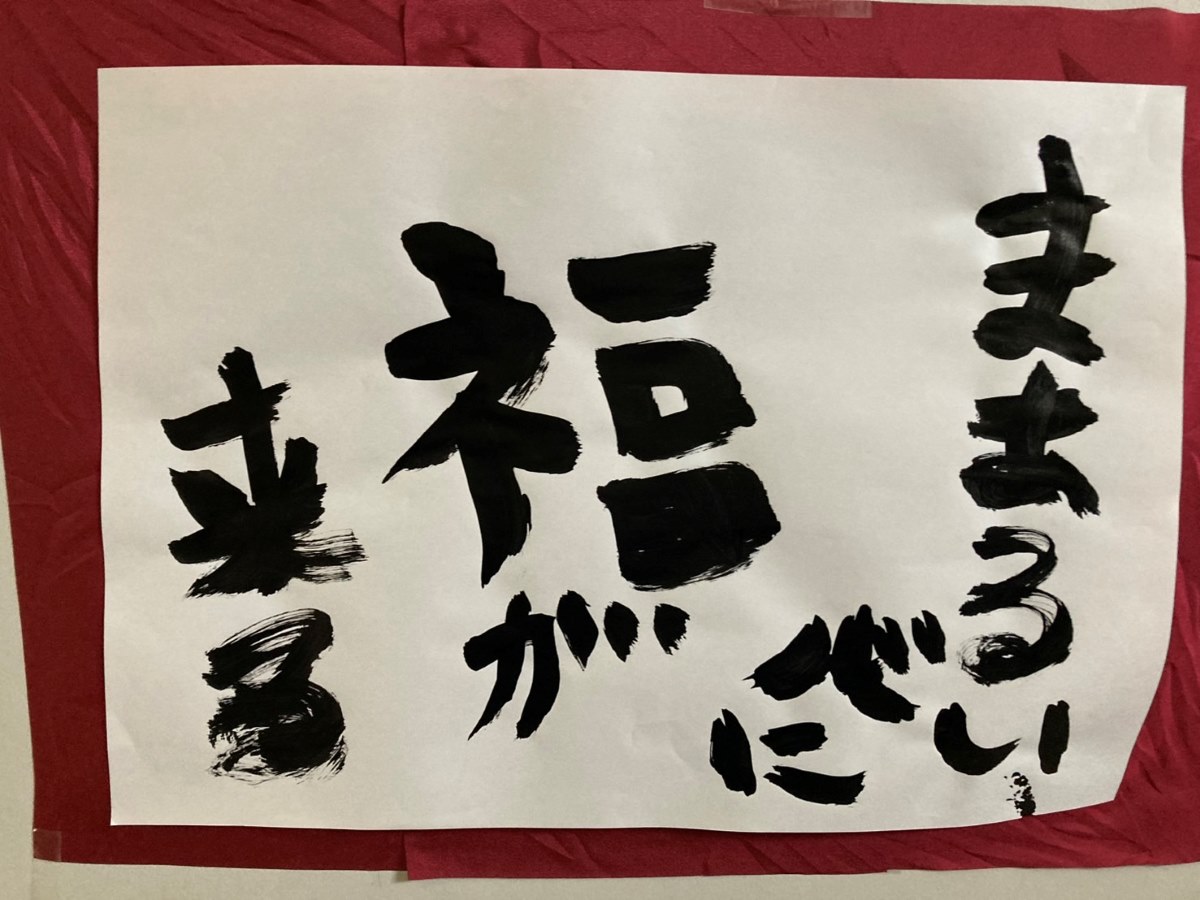 ままるい
に
福が
来る